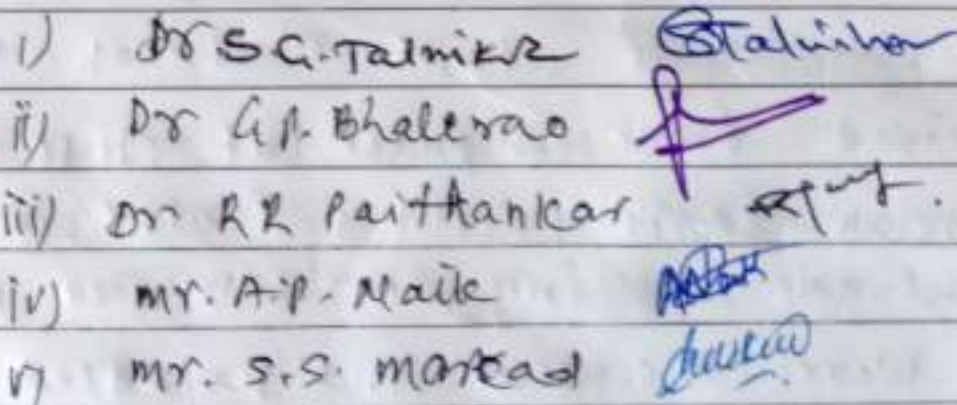 i) Dr S G. Talnikar
ii) Dr G.P. Bhalerao
iii) Dr R R Paithankar
iv) mr. A.P. Naik
v) mr. S.S. markad